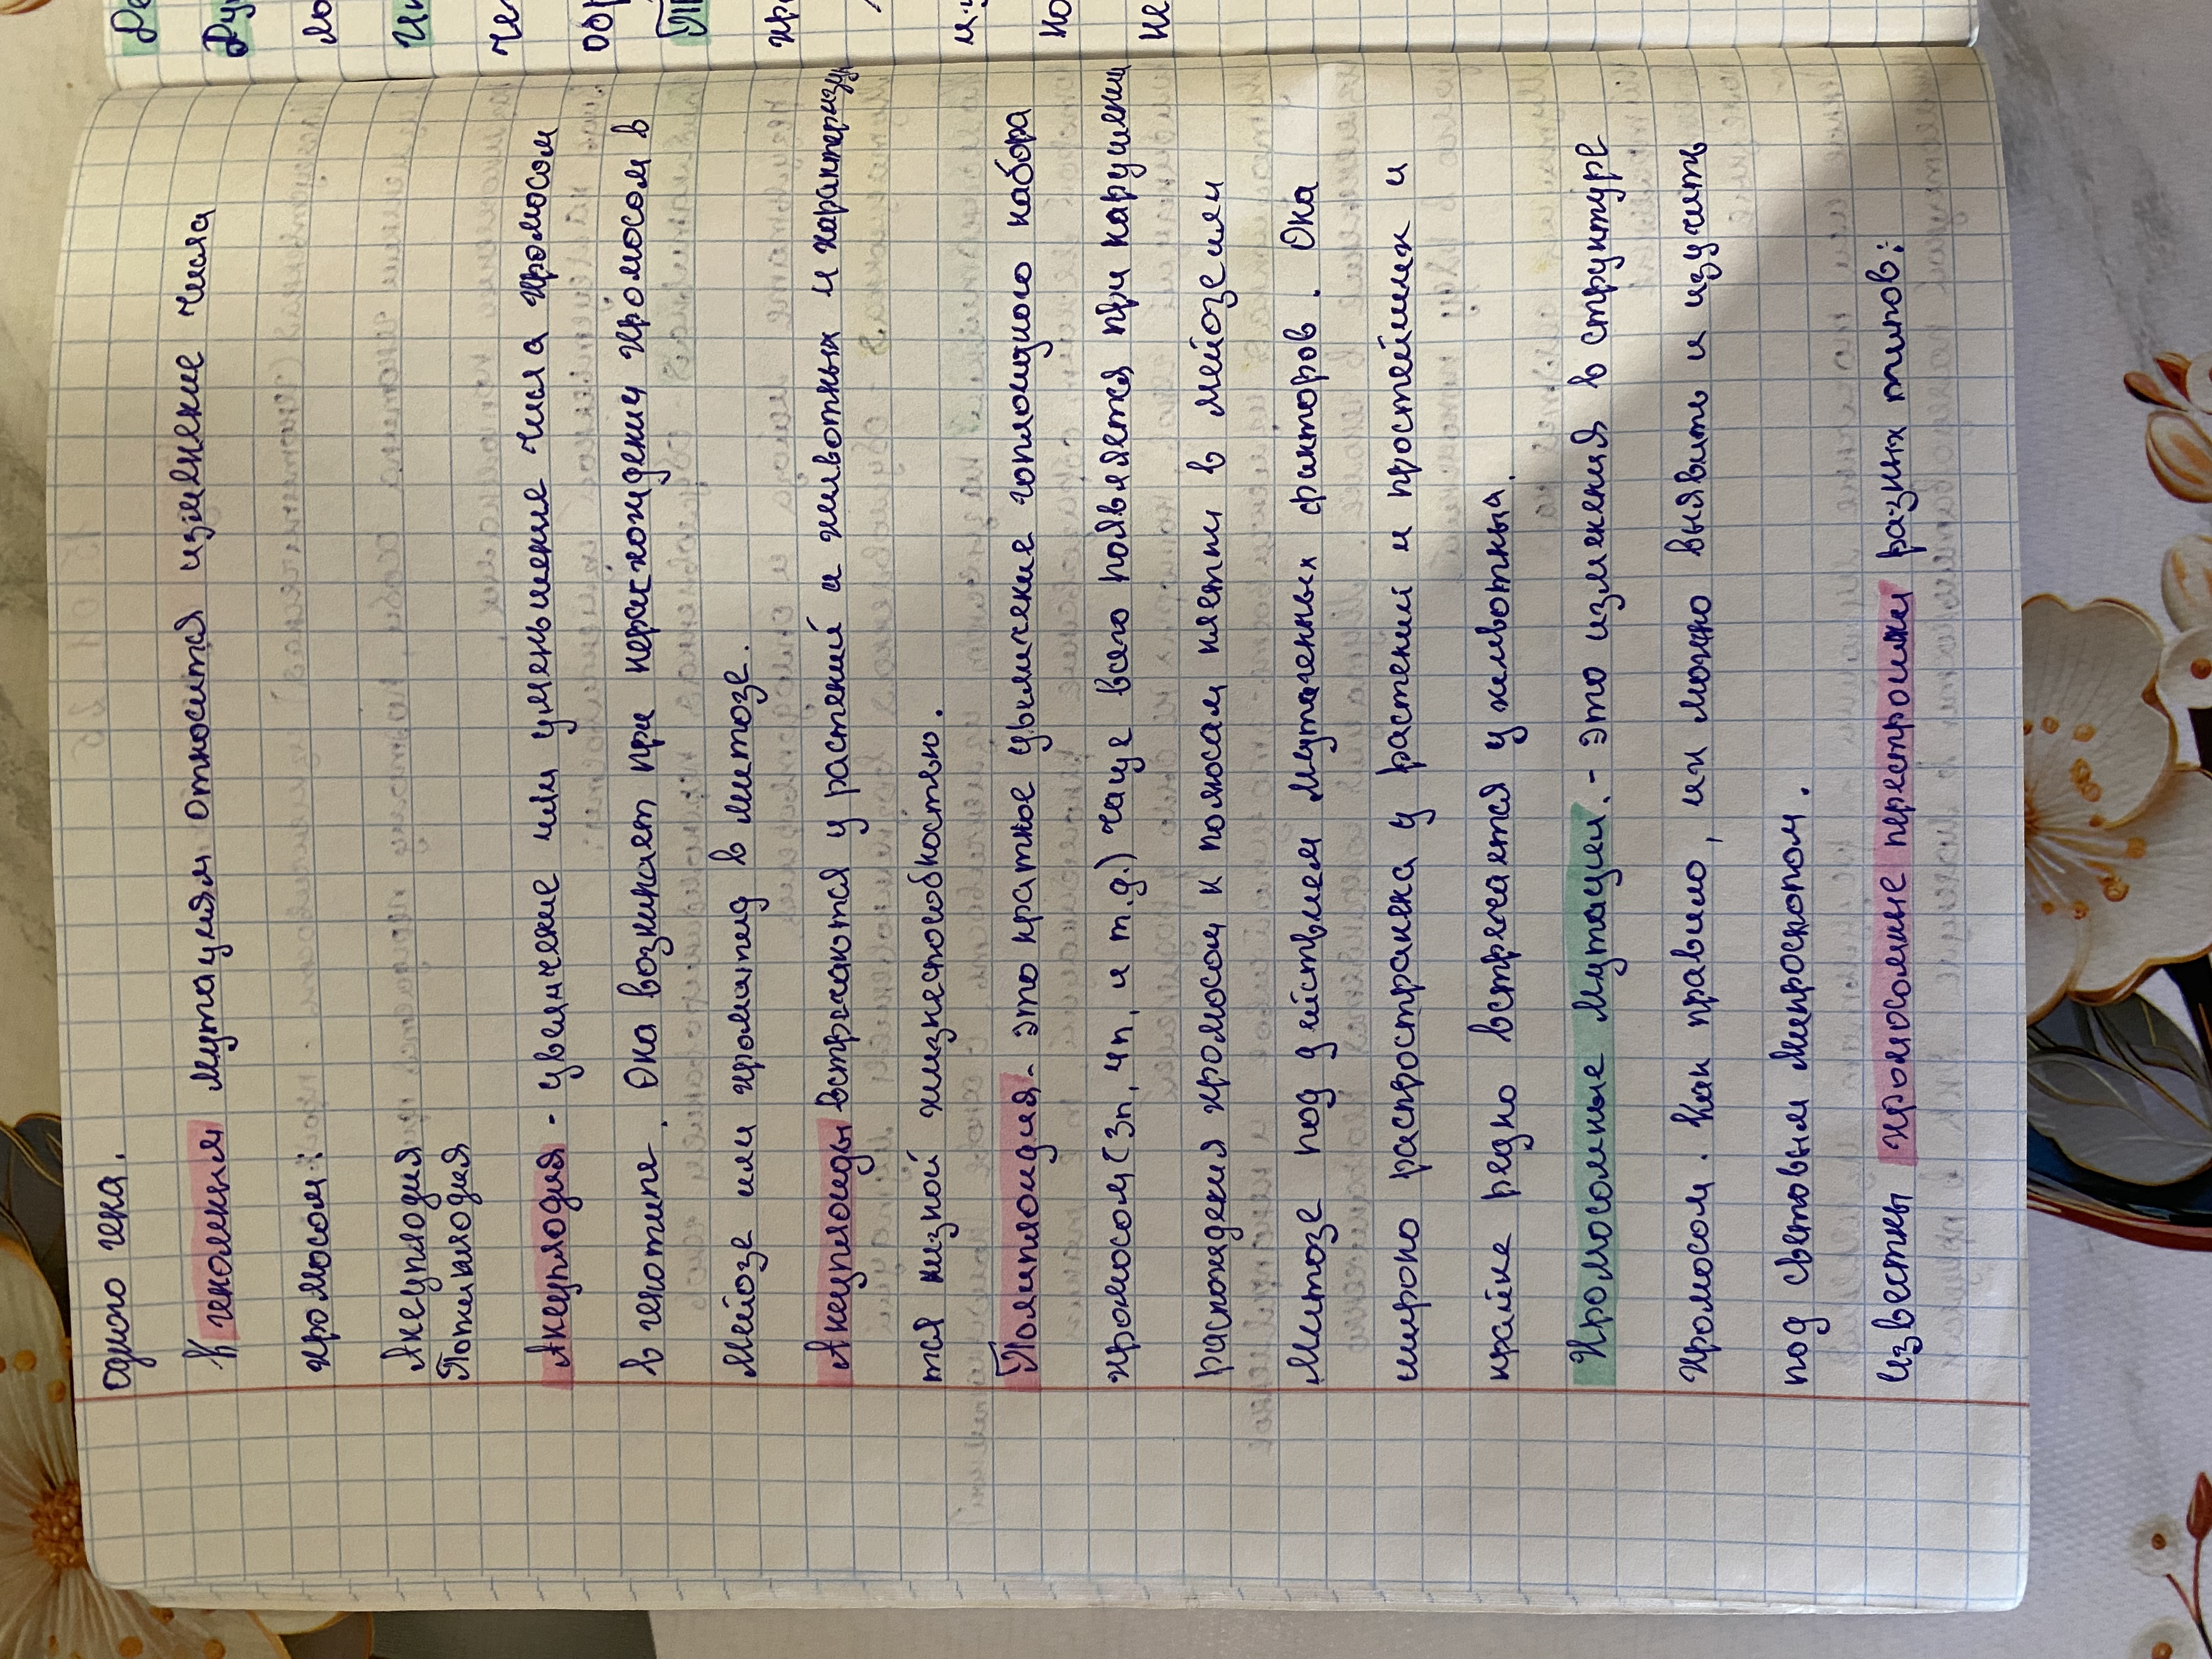 одного гена.
К геномным мутациям относится изменение числа
хромосом:
Анеуплодия
Полиплодия
Анеуплодия - увеличение или уменьшение числа хромосом
в генотипе. Она возникает при нерасхождении хромосом в
мейозе или хроматид в митозе.
Анеуплоиды встречаются у растений и животных и характеризу
тся низкой жизнеспособностью.
Полиплоидия - это кратное увеличение гоплоидного набора
хромосом (3n, 4n, и т.д.) чаще всего появляется при нарушении
расхождения хромосом к полюсам клетки в мейозе или
митозе под действием мутагенных факторов. Она
широко распространена у растений и простейших и
крайне редко встречается у животных.
Хромосомные мутации. - это изменения в структуре
хромосом. Как правило, их можно выявить и изучить
под световым микроскопом.
известны хромосомные перестройки разных типов:
Де
Ду
ло
Ин
че
обр
хро
но
не